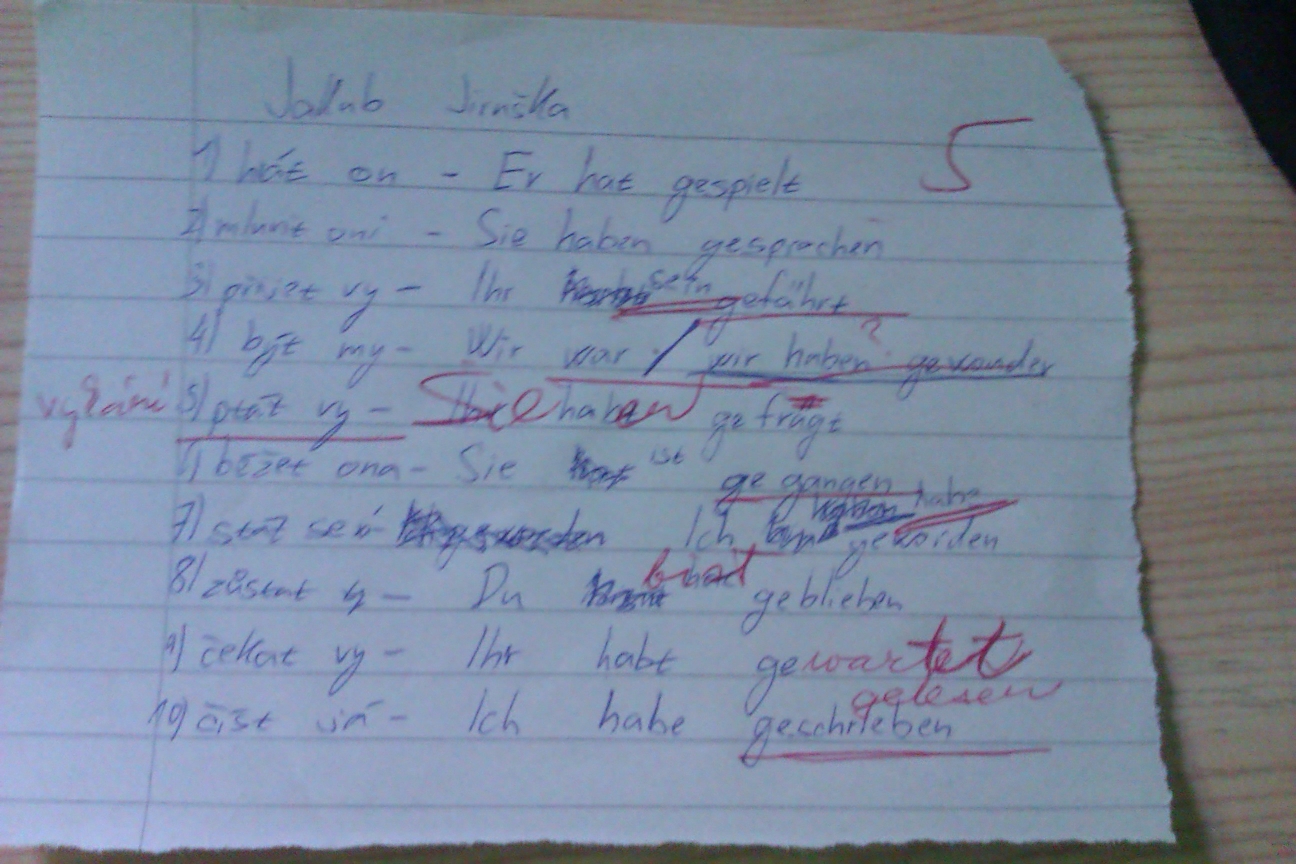 Jakub Jiruška
5
1) hrát on - Er hat gespielt
2) mluvit oni - Sie haben gesprochen
3) přijet vy - Ihr sein gefährt
4) být my - Wir war / wir haben ? geworden
5) ptát vy - Sie haben gefrägt
6) běžet ona - Sie ist gegangen
7) stát se Ich habe geworden
8) zůstat ty - Du bist geblieben
9) čekat vy - Ihr habt gewartet
gelesen
10) číst já - Ich habe geschrieben